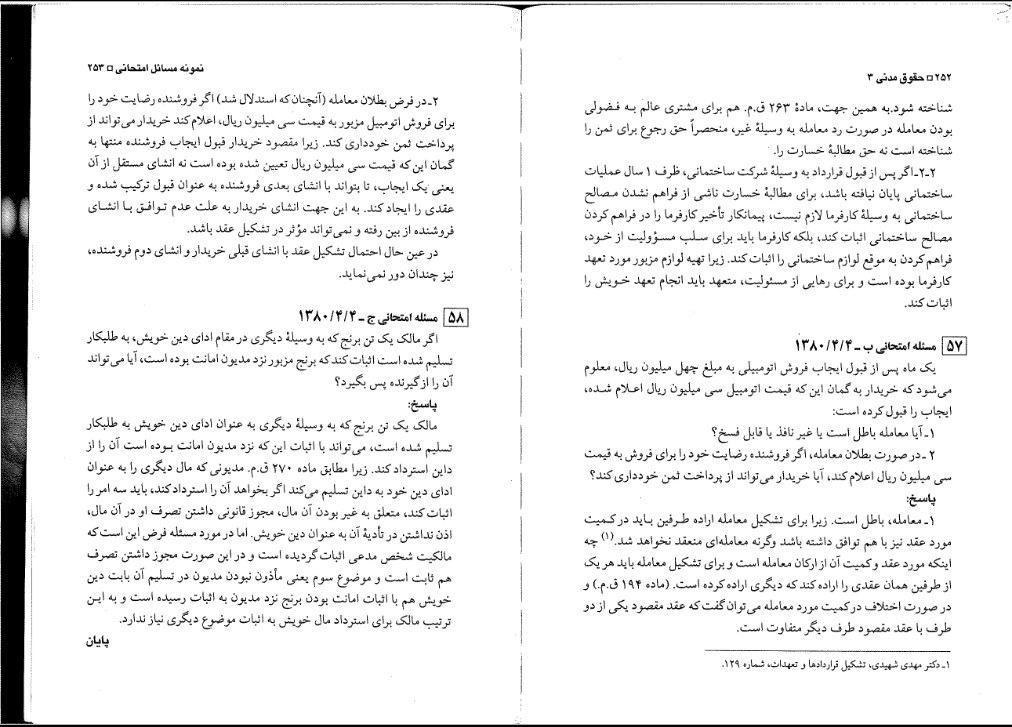 ۲۵۲ □ حقوق مدنی ۳
شناخته شود.به همین جهت، مادهٔ ۲۶۳ ق.م. هم برای مشتری عالم به فضولی
بودن معامله در صورت رد معامله به وسیلهٔ غیر، منحصراً حق رجوع برای ثمن را
شناخته است نه حق مطالبهٔ خسارت را.
۲-۲-اگر پس از قبول قرارداد به وسیلهٔ شرکت ساختمانی، ظرف ۱ سال عملیات
ساختمانی پایان نیافته باشد، برای مطالبهٔ خسارت ناشی از فراهم نشدن مصالح
ساختمانی به وسیلهٔ کارفرما لازم نیست، پیمانکار تأخیر کارفرما را در فراهم کردن
مصالح ساختمانی اثبات کند، بلکه کارفرما باید برای سلب مسؤولیت از خود،
فراهم کردن به موقع لوازم ساختمانی را اثبات کند. زیرا تهیه لوازم مزبور مورد تعهد
کارفرما بوده است و برای رهایی از مسئولیت، متعهد باید انجام تعهد خویش را
اثبات کند.
۵۷ مسئله امتحانی ب ـ ۱۳۸۰/۴/۴
یک ماه پس از قبول ایجاب فروش اتومبیلی به مبلغ چهل میلیون ریال، معلوم
می‌شود که خریدار به گمان این که قیمت اتومبیل سی میلیون ریال اعلام شده،
ایجاب را قبول کرده است:
۱ـ آیا معامله باطل است یا غیر نافذ یا قابل فسخ؟
۲ ـ در صورت بطلان معامله، اگر فروشنده رضایت خود را برای فروش به قیمت
سی میلیون ریال اعلام کند، آیا خریدار می‌تواند از پرداخت ثمن خودداری کند؟
پاسخ:
۱ـ معامله، باطل است. زیرا برای تشکیل معامله اراده طرفین باید در کمیت
مورد عقد نیز با هم توافق داشته باشد وگرنه معامله‌ای منعقد نخواهد شد.(۱) چه
اینکه مورد عقد و کمیت آن از ارکان معامله است و برای تشکیل معامله باید هر یک
از طرفین همان عقدی را اراده کند که دیگری اراده کرده است. (ماده ۱۹۴ ق.م.) و
در صورت اختلاف در کمیت مورد معامله می‌توان گفت که عقد مقصود یکی از دو
طرف با عقد مقصود طرف دیگر متفاوت است.
۱ـ دکتر مهدی شهیدی، تشکیل قراردادها و تعهدات، شماره ۱۲۹.
نمونه مسائل امتحانی □ ۲۵۳
۲ـ در فرض بطلان معامله (آنچنان که استدلال شد) اگر فروشنده رضایت خود را
برای فروش اتومبیل مزبور به قیمت سی میلیون ریال، اعلام کند خریدار می‌تواند از
پرداخت ثمن خودداری کند. زیرا مقصود خریدار قبول ایجاب فروشنده منتها به
گمان این که قیمت سی میلیون ریال تعیین شده بوده است نه انشای مستقل از آن
یعنی یک ایجاب، تا بتواند با انشای بعدی فروشنده به عنوان قبول ترکیب شده و
عقدی را ایجاد کند. به این جهت انشای خریدار به علت عدم توافق با انشای
فروشنده از بین رفته و نمی‌تواند مؤثر در تشکیل عقد باشد.
در عین حال احتمال تشکیل عقد با انشای قبلی خریدار و انشای دوم فروشنده،
نیز چندان دور نمی‌نماید.
۵۸ مسئله امتحانی ج ـ ۱۳۸۰/۴/۴
اگر مالک یک تن برنج که به وسیلهٔ دیگری در مقام ادای دین خویش، به طلبکار
تسلیم شده است اثبات کند که برنج مزبور نزد مدیون امانت بوده است، آیا می‌تواند
آن را از گیرنده پس بگیرد؟
پاسخ:
مالک یک تن برنج که به وسیلهٔ دیگری به عنوان ادای دین خویش به طلبکار
تسلیم شده است، می‌تواند با اثبات این که نزد مدیون امانت بوده است آن را از
داین استرداد کند. زیرا مطابق ماده ۲۷۰ ق.م. مدیونی که مال دیگری را به عنوان
ادای دین خود به داین تسلیم می‌کند اگر بخواهد آن را استرداد کند، باید سه امر را
اثبات کند، متعلق به غیر بودن آن مال، مجوز قانونی داشتن تصرف او در آن مال،
اذن نداشتن در تأدیهٔ آن به عنوان دین خویش. اما در مورد مسئله فرض این است که
مالکیت شخص مدعی اثبات گردیده است و در این صورت مجوز داشتن تصرف
هم ثابت است و موضوع سوم یعنی مأذون نبودن مدیون در تسلیم آن بابت دین
خویش هم با اثبات امانت بودن برنج نزد مدیون به اثبات رسیده است و به این
ترتیب مالک برای استرداد مال خویش به اثبات موضوع دیگری نیاز ندارد.
پایان